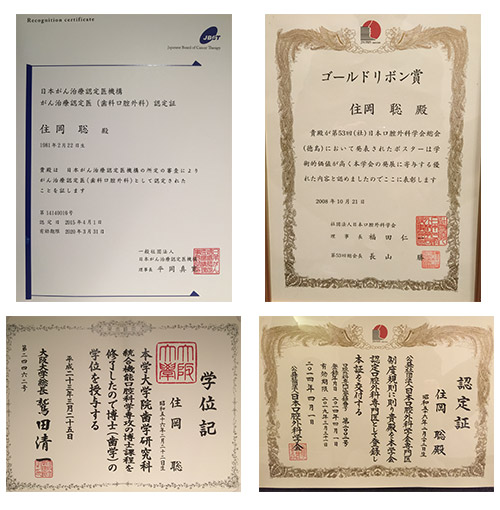 Recognition certificate
JBCT
Japanese Board of Cancer Therapy
日本がん治療認定医機構
がん治療認定医（歯科口腔外科）認定証
住岡 聡 殿
1981年2月22日生
貴殿は 日本がん治療認定医機構の所定の審査により
がん治療認定医(歯科口腔外科)として認定された
ことを証します
第 14140016号
認定日 2015年4月1日
有効期限 2020年3月31日
一般社団法人
日本がん治療認定医機構
理事長 平岡真寛
ゴールドリボン賞
住岡 聡 殿
貴殿が第53回(社)日本口腔外科学会総会
(徳島)において発表されたポスターは学
術的価値が高く本学会の発展に寄与する優
れた内容と認めましたのでここに表彰します
2008年10月21日
社団法人日本口腔外科学会
理事長 福田 仁
第53回総会長 長山 勝
学位記
住岡 聡
昭和五十六年二月二十二日生
本学大学院歯学研究科
統合機能口腔科学専攻の博士課程を
修了したので博士（歯学）の
学位を授与する
平成二十三年三月二十五日
大阪大学総長 鷲田清一
第二四四六二号
認定証
住岡 聡殿
昭和五六年二月二二日生
公益社団法人日本口腔外科学会専門医
制度規則に則り貴殿を本学会
認定口腔外科専門医として登録し
本証を交付する
二〇一四年四月一日
公益社団法人日本口腔外科学会